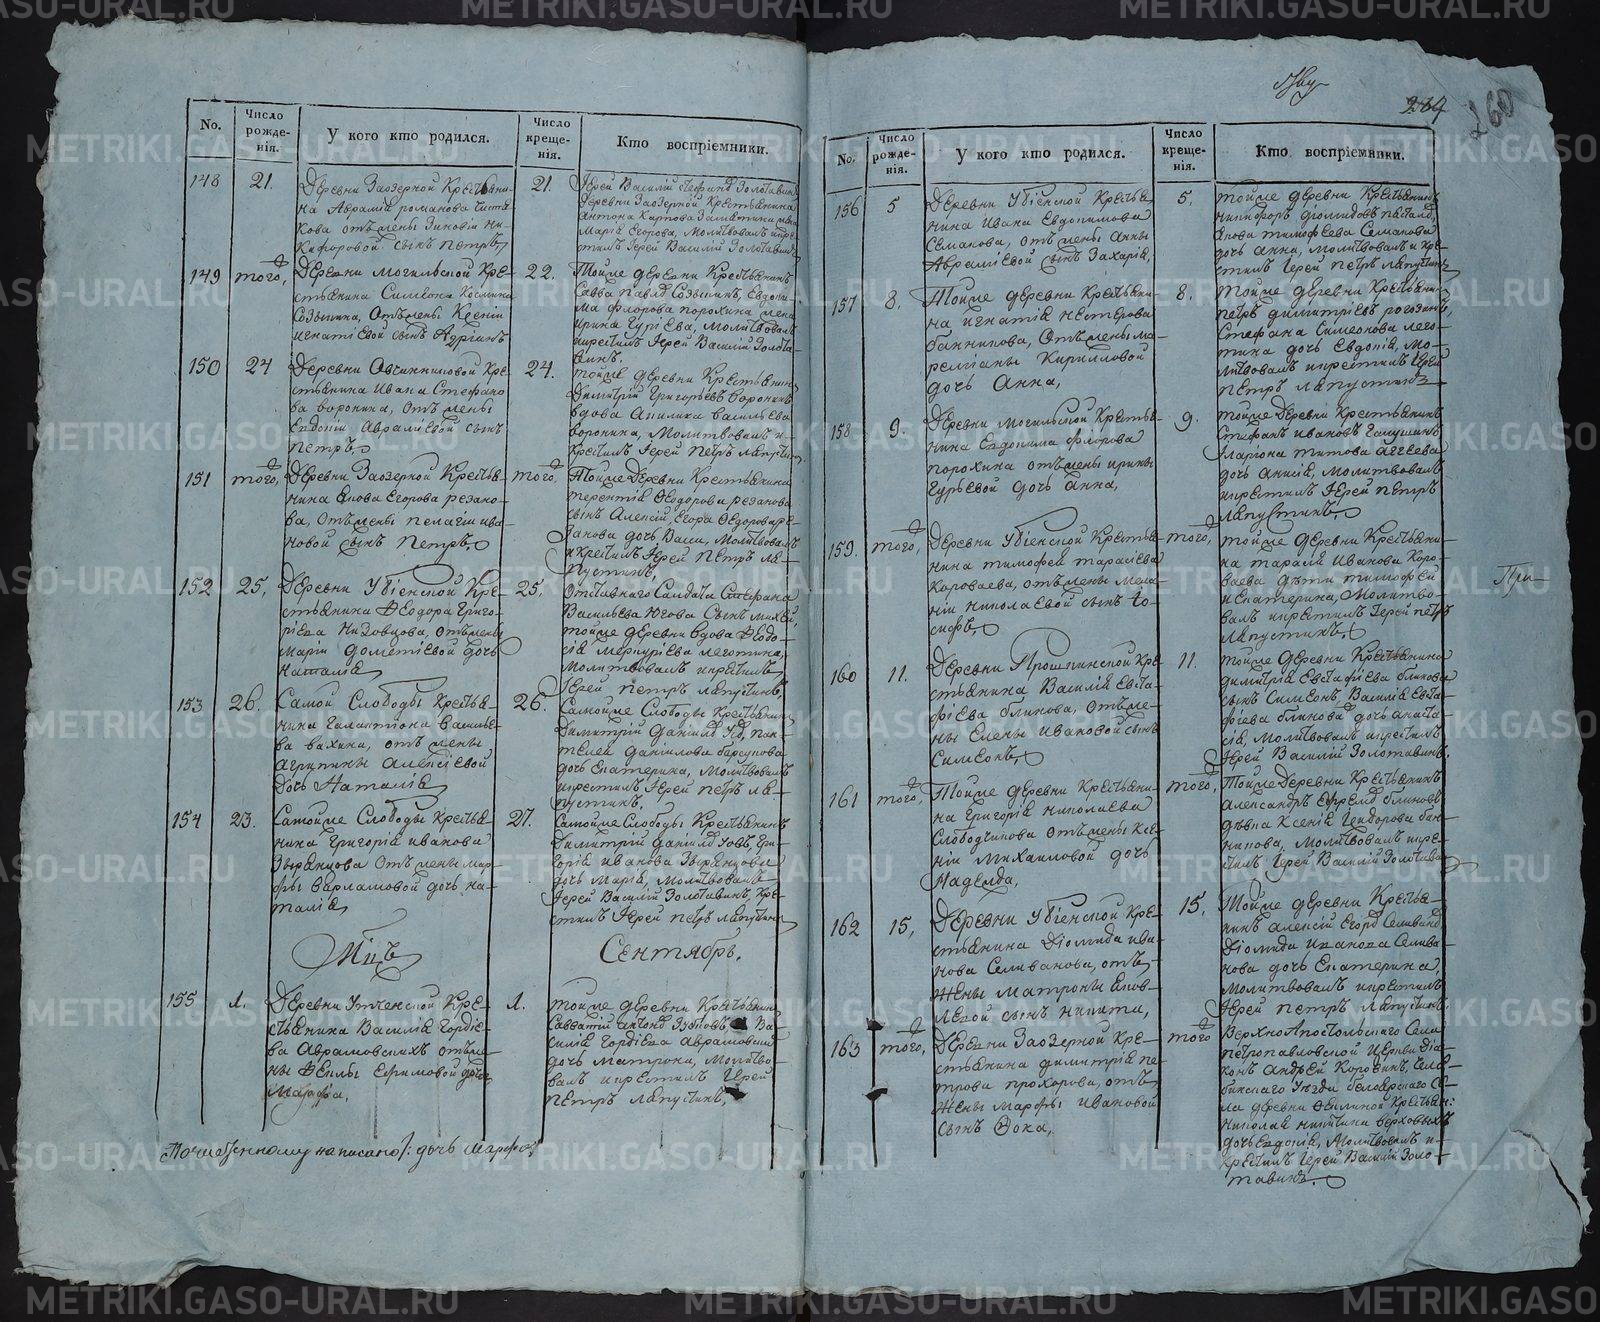 No.
Число рожде-нія.
У кого кто родился.
Число креще-нія.
Кто воспріемники.
148
21.
Деревни Заозерной Крестьяни-
на Аврамія романова
кова отъ жены Зиновіи Ни-
кифоровой сынъ петръ,
21.
Іерей Василій
деревни Заозерной Крестьянина
Антона Карпова
Марія Егорова, Молитвовалъ и кре-
стилъ Іерей Василій Золотавинъ
149
того,
Деревни могильской Кре-
стьянина Симеона Козмина
Созыкина, отъ жены Ксеніи
игнатіевой сынъ Адріанъ
22.
Тойже деревни Крестьянинъ
Савва павловъ Созыкинъ, Евдоки-
ма Флорова порохина жена
ирина Гуріева, молитвовалъ
икрестилъ Іерей Василій Золота-
винъ.
150
24
Деревни Овчинниковой Кре-
стьянина Ивана Стефано-
ва воронина, отъ жены
Евдокіи Авраміевой сынъ
петръ,
24.
тойже деревни Крестьянинъ
Димитрій Григорьевъ воронинъ
вдова Акилина васильева
воронина, Молитвовалъ и-
крестилъ Іерей Петръ лапустинъ,
151
того,
Деревни Заозерной Крестья-
нина Якова Егорова резано-
ва, отъ жены пелагіи ива-
новой сынъ петръ,
того,
Тойже Деревни Крестьянина
терентія Ѳеодорова резанова
сынъ Алексій, Егора Ѳедорова ре-
занова дочь Васса, Молитвовалъ
икрестилъ Іерей петръ ла-
пустинъ,
152
25,
Деревни Убіенской Кре-
стьянина Ѳеодора Григо-
ріева Низовцова, отъ жены
маріи дометіевой дочь
наталія,
25,
отставнаго Салдата Стефана
Васильева Югова сынъ михей,
тойже деревни вдова Ѳеодо-
сія меркуріева леготина,
молитвовалъ икрестилъ
Іерей петръ лапустинъ,
153
26.
Самой Слободы Крестья-
нина галактіона василье-
ва вахина, отъ жены
агрипины алексіевой
дочь Наталія,
26.
Самойже Слободы Крестьянинъ
Димитрій Даніиловъ, пан-
телея даніилова барсукова
дочь екатерина, молитвовалъ
икрестилъ Іерей петръ ла-
пустинъ,
154
23.
Самойже Слободы Крестья-
нина григорія иванова
Зырянцова отъ жены мар-
ѳы варламовой дочь на-
талія,
27.
Самойже Слободы Крестьянинъ
Димитрій Даніиловъ, Гри-
горія иванова Зырянцова
дочь марія, молитвовалъ
Іерей Василій Золотавинъ, кре-
стилъ Іерей петръ лапустинъ
Мцъ
Сентябрь.
155
1.
Деревни Утченской Кре-
стьянина Василія гордіе-
ва Аврамовскихъ отъ же-
ны Ѳеклы ефимовой дочь
марфа,
1.
тойже деревни Крестьянинъ
Савватій Зубовъ Ва-
силія Гордіева Аврамовскихъ
дочь матрона, молитво-
валъ икрестилъ Іерей
петръ лапустинъ,
Почищенному написано: дочь марфа
264
260
No.
Число рожде-нія.
У кого кто родился.
Число креще-нія.
Кто воспріемники.
156
5
Деревни Убіенской Крестья-
нина Ивана Евдокимова
Семакова, отъ жены Анны
Авраміевой сынъ Захарія,
5.
тойже деревни Крестьянинъ
никифоръ
Якова тимофеева Семакова
дочь анна, молитвовалъ и кре-
стилъ Іерей петръ лапустинъ
157
8.
Тойже деревни Крестьяни-
на игнатія нестерова
банникова, отъ жены ма-
реміяны Кирилловой
дочь Анна,
8.
тойже деревни Крестьянинъ
петръ димитріевъ рогозинъ,
Стефана Симеонова лего-
тина дочь Евдокія, мо-
литвовалъ икрестилъ Іерей
петръ лапустинъ
158
9.
Деревни могильской Крестья-
нина Евдокима флорова
порохина отъ жены ирины
гурьевой дочь анна,
9.
тойже деревни Крестьянинъ
Стефанъ ивановъ галушинъ
Ларіона титова агѣева
дочь анисія, молитвовалъ
икрестилъ Іерей петръ
лапустинъ,
159.
того,
Деревни Убіенской Крестья-
нина тимофея таралева
Короваева, отъ жены мела-
ніи николаевой сынъ Іо-
сифъ,
того,
тойже деревни Крестьяни-
на тарасія Иванова Коро-
ваева дѣти тимофей
и екатерина, молитво-
валъ икрестилъ Іерей петръ
лапустинъ,
При-
160
11.
Деревни Прошкинской Кре-
стьянина Василія Евста-
фіева блинова, отъ же-
ны елены ивановой сынъ
Симеонъ,
11.
тойже деревни Крестьянина
димитрія Евстафіева блинова
сынъ Симеонъ, Василія Евста-
фіева блинова дочь анаста-
сія, молитвовалъ икрестилъ
Іерей Василій Золотавинъ,
161
того,
Тойже деревни Крестьяни-
на григорія николаева
Слободчикова отъ жены ксе-
ніи михаиловой дочь
надежда,
того,
Тойже деревни Крестьянинъ
александръ Ефремовъ блиновъ
дѣвка Ксенія
нинова, молитвовалъ икре-
стилъ Іерей Василій Золотавинъ
162
15,
Деревни Убіенской Кре-
стьянина Діомида ива-
нова Селиванова, отъ
жены матроны Яков-
левой сынъ никита,
15,
Тойже деревни Крестья-
нинъ алексій Егоровъ Селивановъ
Діомида иванова Селива-
нова дочь екатерина,
молитвовалъ икрестилъ
Іерей петръ лапустинъ
163
того,
Деревни Заозерной Кре-
стьянина димитрія пе-
трова прохорова, отъ
жены марфы ивановой
сынъ Ѳока,
того
Верхно Апостольскаго Села
петропавловской Церкви діа-
конъ Андрей Коровинъ, Челя-
бинскаго Уезда белоярскаго Се-
ла деревни Крестьян:
николая никитина верховыхъ
дочь евдокія, молитвовалъ и-
крестилъ Іерей Василій Золо-
тавинъ.
METRIKI.GASO-URAL.RU